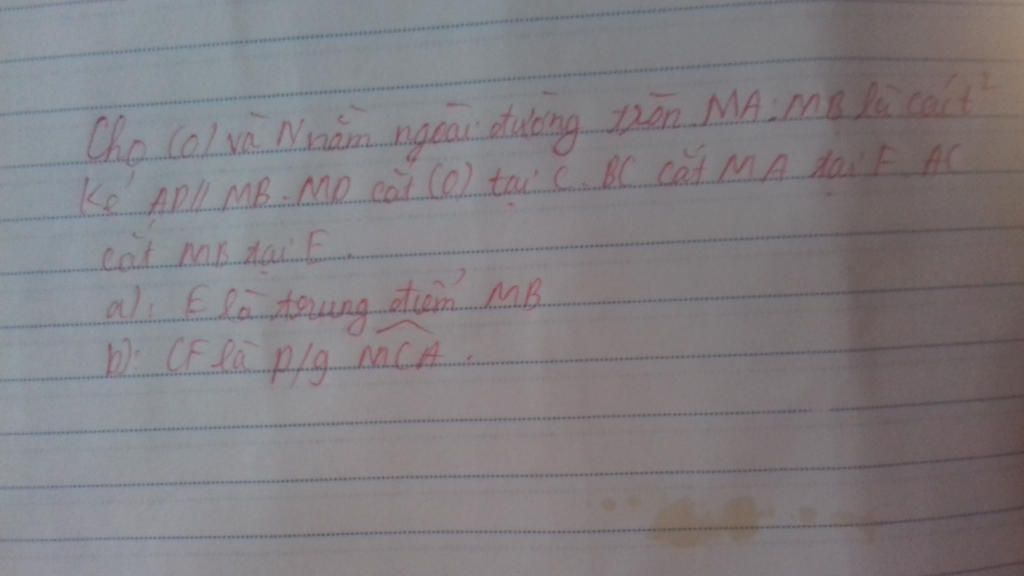 Cho (O) và M nằm ngoài đường tròn MA; MB là các t²
Kẻ AD // MB. MD cắt (O) tại C. BC cắt MA tại F. AC
cắt MB tại E.
a): E là trung điểm MB
b): CF là p/g MCA.